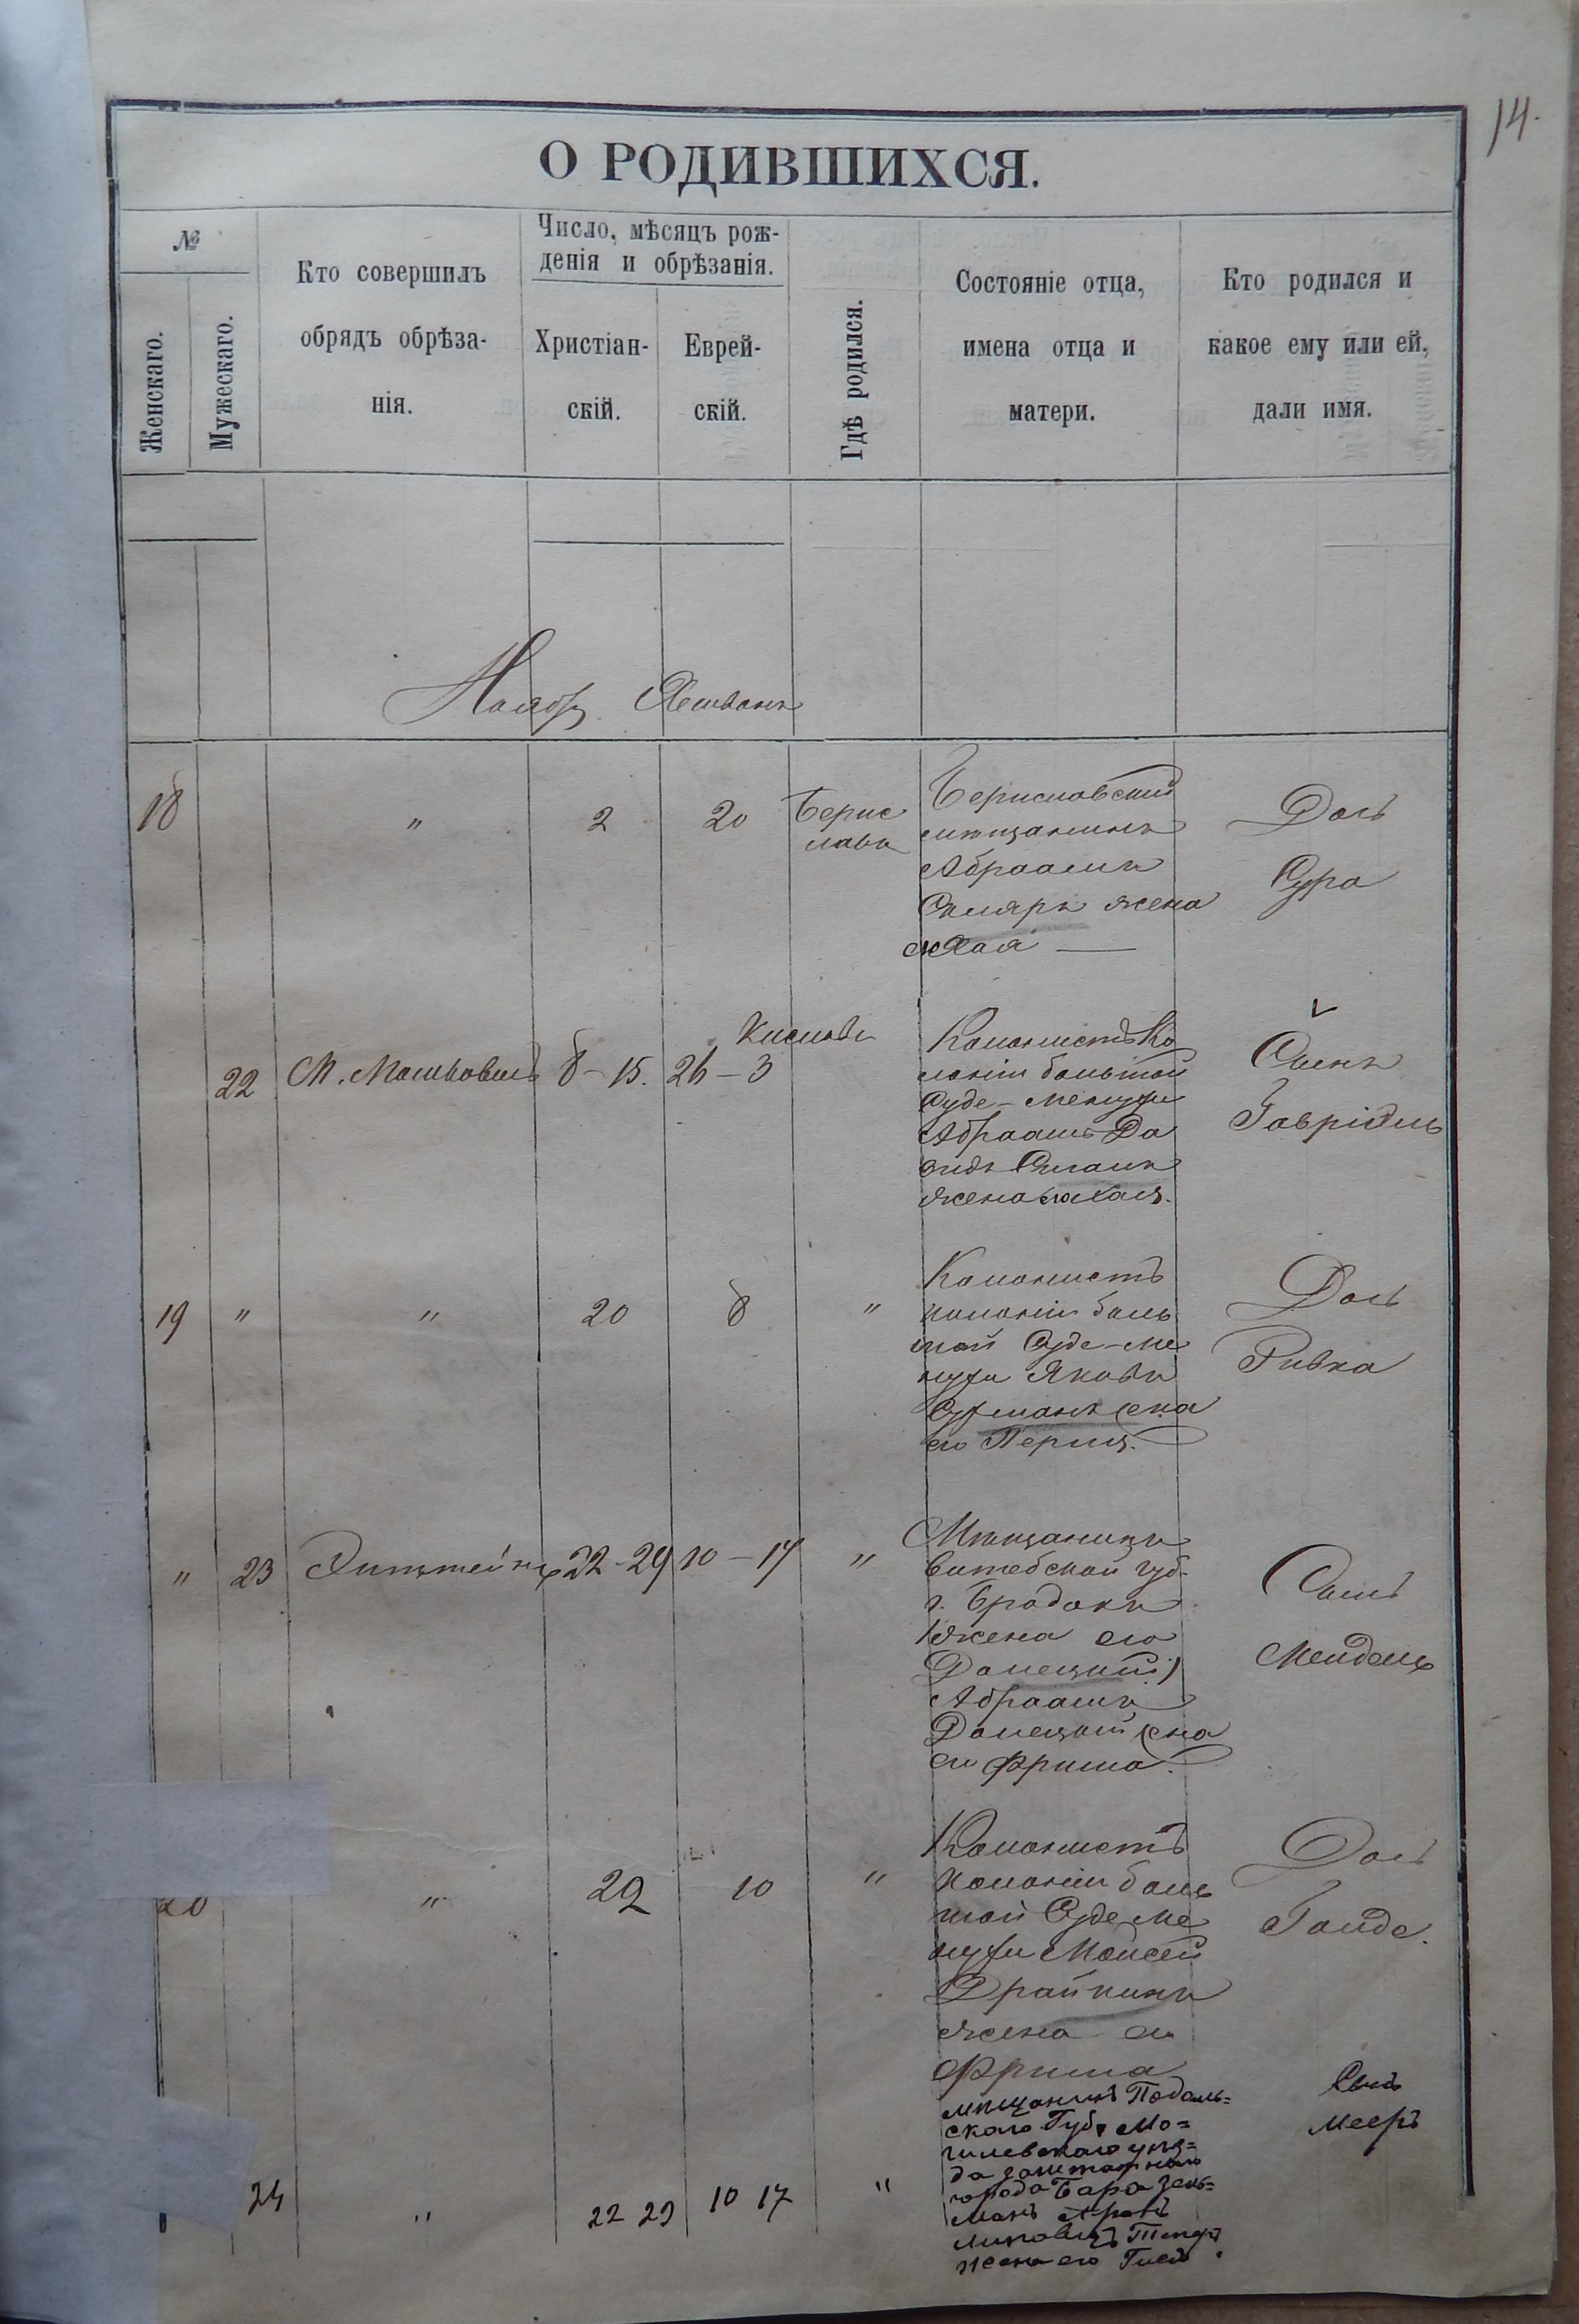 14.
О РОДИВШИХСЯ.
№
Женскаго.
Мужескаго.
Кто совершилъ
обрядъ обрѣза-
нія.
Число, мѣсяцъ рож-
денія и обрѣзанія.
Христіан-
скій.
Еврей-
скій.
Гдѣ родился.
Состояніе отца,
имена отца и
матери.
Кто родился и
какое ему или ей,
дали имя.
Ноябрь Хешванъ
18 " 2 20
Берис
лавъ
Бериславскій
мѣщанинъ
Абраамъ
Скляръ жена
Хая —
Дочь
Сура
22 8-15. 26-3
Кислевъ
Колонистъ Ко
лоніи большой
Суде-Менухи
Абраамъ Да
видъ
жена его Хая.
Сынъ
Гавріэль
19 " " 20 8 "
Колонистъ
колоніи боль
шой Суде-Ме
нухи Яковъ
жена
его Перля.
Дочь
Ривка
" 23 Эпштейнъ 22-29 10-17 "
Мѣщанинъ
витебской губ.
г.
Абраамъ
Донецкій жена
его Фрума.
Сынъ
Мендель
20 " 22 10 "
Колонистъ
колоніи боль
шой Суде Ме
нухи Мойсей
Драйкинъ
жена его
Фрума
Дочь
24 " 22 29 10 17 "
мѣщанинъ Подоль=
ской Губ. Мо=
гилевскаго уѣз=
да заштатнаго
города Бара Зель=
манъ
жена его
Сынъ
Мееръ